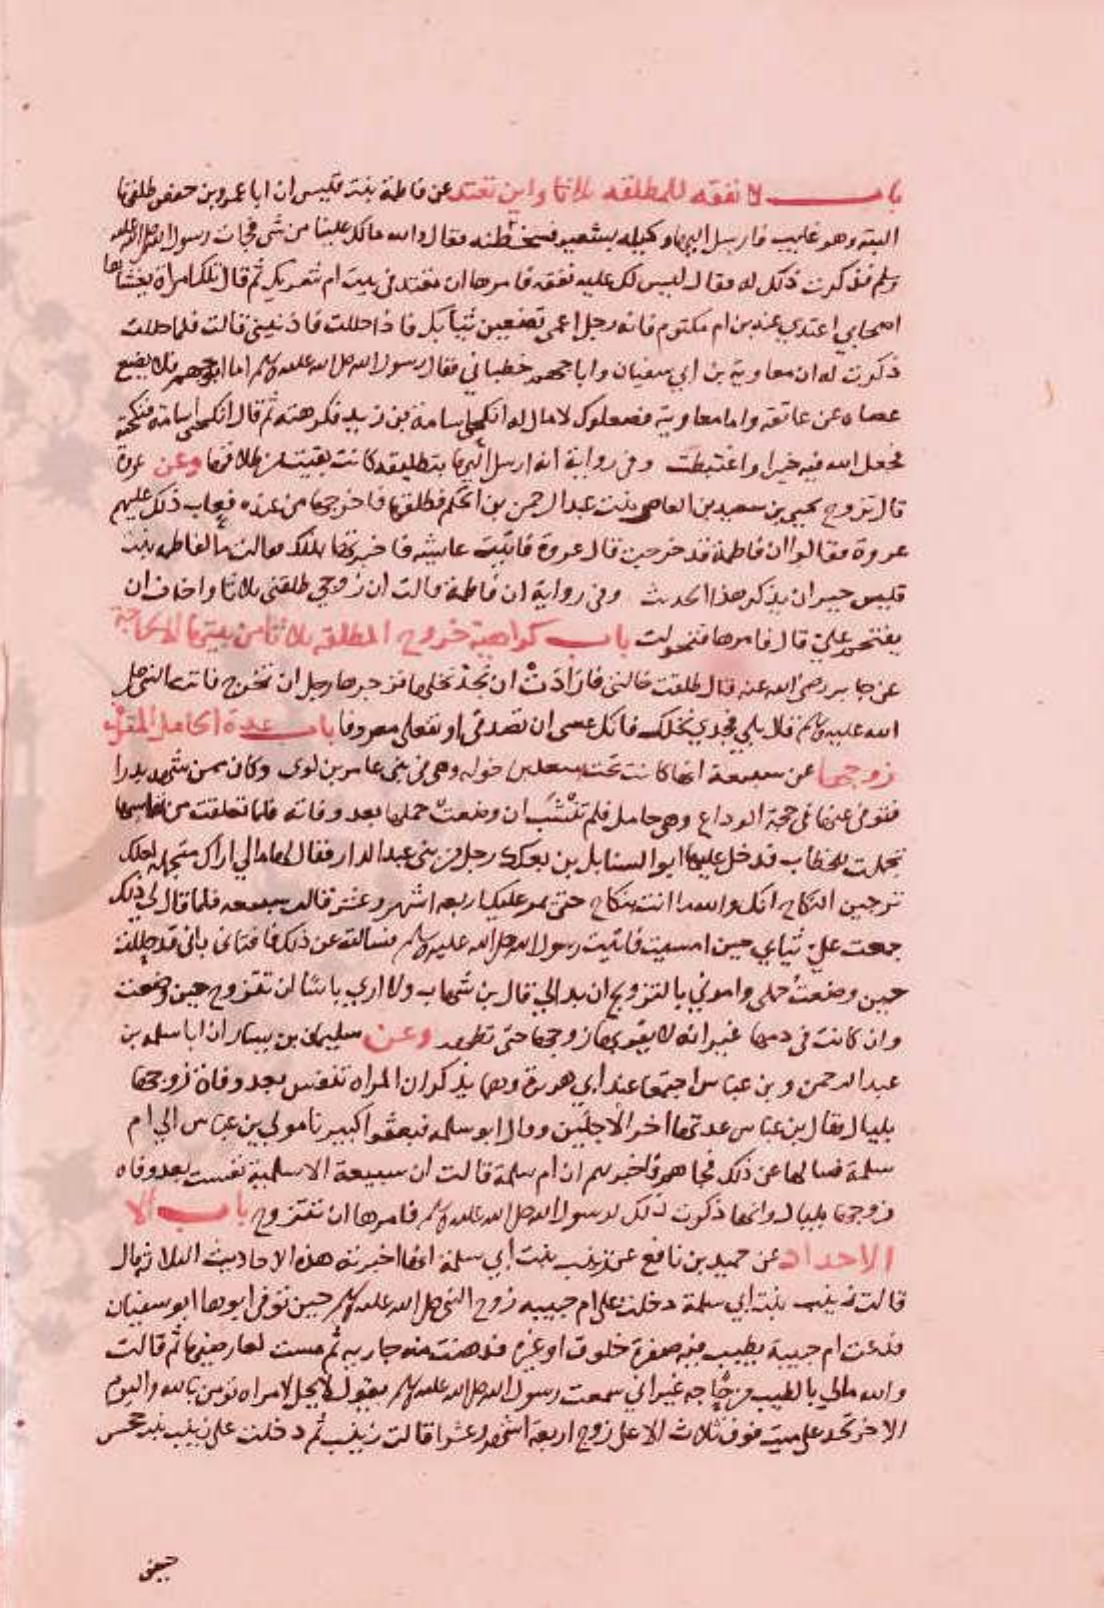 باب لا نفقه للمطلقه ثلاثا واين تعتد عن فاطمة بنت قيس ان ابا عمرو بن حفص طلقها
البتة وهو غايب فارسل اليها وكيله بشعير فسخطته فقال والله مالك علينا من شى فجات رسول الله صلى الله عليه
وسلم فذكرت ذلك له فقال ليس لك عليه نفقه فامرها ان تعتد فى بيت ام شريك ثم قال تلك امراة يغشاها
اصحابي اعتدي عند بن ام مكتوم فانه رجل اعمى تضعين ثيابك فاذا حللت فاذنينى قالت فلما حللت
ذكرت له ان معاوية بن ابي سفيان وابا جهم خطباني فقال رسول الله صلى الله عليه وسلم اما ابو جهم فلا يضع
عصاه عن عاتقه واما معاوية فصعلوك لا مال له انكحي اسامة بن زيد فكرهته ثم قال انكحى اسامة فنكحته
فجعل الله فيه خيرا واغتبطت وفى رواية انه ارسل اليها بتطليقه كانت بقيت من طلاقها وعن عروة
قال تزوج يحيى بن سعيد بن العاص بنت عبد الرحمن بن الحكم فطلقها فاخرجها من عنده فعاب ذلك عليهم
عروة فقالوا ان فاطمة قد خرجت قال عروة فاتيت عايشه فاخبرتها بذلك فقالت ما لفاطمه بنت
قيس خير ان يذكر هذا الحديث وفى رواية ان فاطمة قالت ان زوجي طلقنى ثلاثا واخاف ان
يقتحم علي قال فامرها فتحولت باب كراهية خروج المطلقه ثلاثا من بيتها الا لحاجة
عن جابر رضى الله عنه قال طلقت خالتى فارادت ان تجد نخلها فزجرها رجل ان تخرج فاتت النبى صلى
الله عليه وسلم فقال بلي فجدي نخلك فانك عسى ان تصدقى او تفعلى معروفا باب عدة الحامل المتوفى
زوجها عن سبيعة انها كانت تحت سعد بن خوله وهى فى بنى عامر بن لوى وكان ممن شهد بدرا
فتوفى عنها فى حجة الوداع وهى حامل فلم تنشب ان وضعت حملها بعد وفاته فلما تعلقت من نفاسها
تجملت للخطاب فدخل عليها ابو السنابل بن بعكك رجل من بنى عبد الدار فقال لها مالي اراك متجملة لعلك
ترجين النكاح انك والله ما انت بناكح حتى يمر عليك اربعه اشهر وعشر قالت سبيعه فلما قال لي ذلك
جمعت علي ثيابي حين امسيت فاتيت رسول الله صلى الله عليه وسلم فسالته عن ذلك فافتانى بانى قد حللت
حين وضعت حملى وامرني بالتزويج ان بدا لي قال بن شهاب ولا اري باسا ان تتزوج حين وضعت
وان كانت فى دمها غير انه لا يقربها زوجها حتى تطهر وعن سليمان بن يسار ان ابا سلمه بن
عبد الرحمن وبن عباس اجتمعا عند ابي هريرة وهما يذكران المراه تنفس بعد وفاة زوجها
بليال فقال بن عباس عدتها اخر الاجلين وقال ابو سلمه فبعثوا كريبا مولى بن عباس الي ام
سلمة فسالها عن ذلك فجاهم فاخبرهم ان ام سلمة قالت ان سبيعة الاسلمية نفست بعد وفاه
زوجها بليال وانها ذكرت ذلك لرسول الله صلى الله عليه وسلم فامرها ان تتزوج باب الا
الاحداد عن حميد بن نافع عن زينب بنت ابي سلمة انها اخبرته هذه الاحاديث الثلاثة قال
قالت زينب بنت ابي سلمة دخلت على ام حبيبه زوج النبى صلى الله عليه وسلم حين توفى ابوها ابو سفيان
فدعت ام حبيبة بطيب فيه صفرة خلوق او غيره فدهنت منه جاريه ثم مست بعارضيها ثم قالت
والله مالي بالطيب من حاجه غير اني سمعت رسول الله صلى الله عليه وسلم يقول لا يحل لامراه تومن بالله واليوم
الاخر تحد على ميت فوق ثلاث الا على زوج اربعة اشهر وعشرا قالت زينب ثم دخلت على زينب بنت جحش
حين